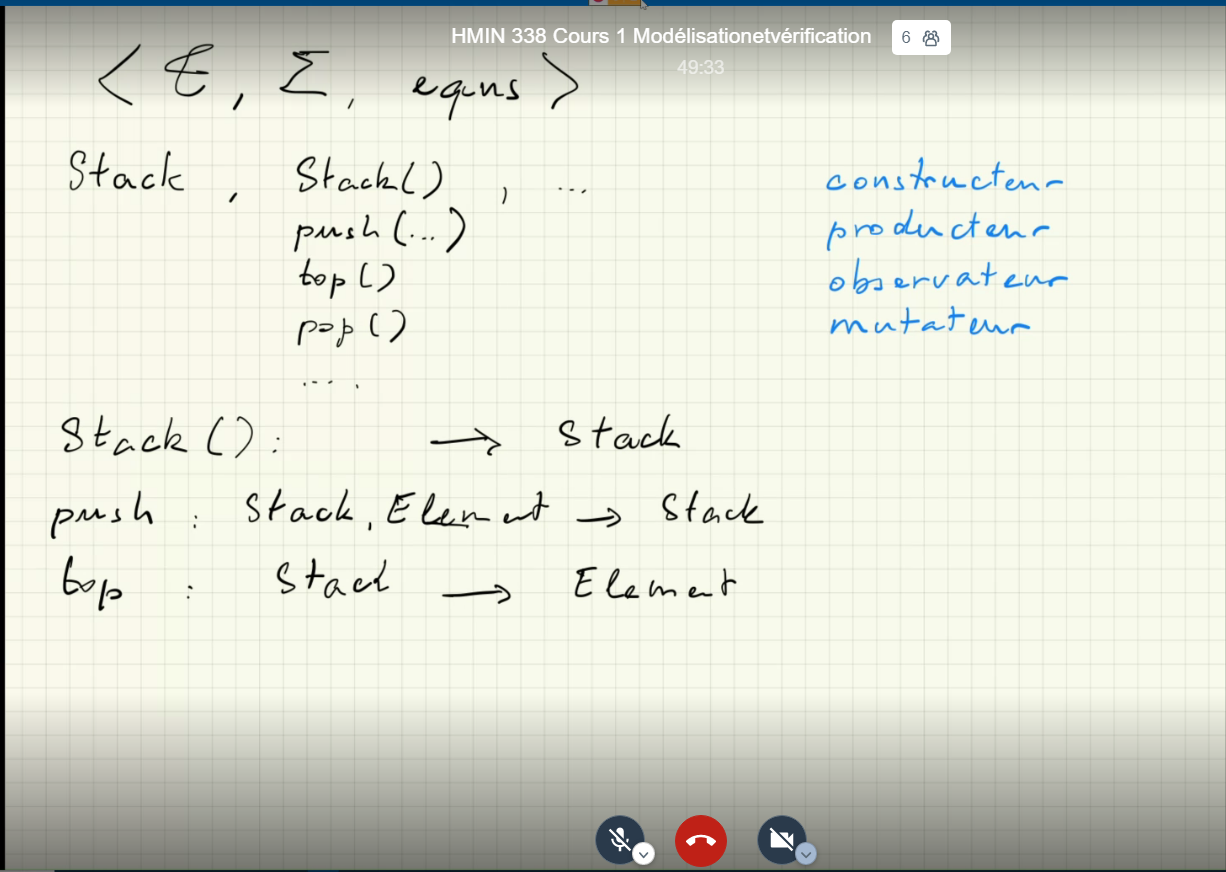 HMIN 338 Cours 1 Modélisationetvérification 6
49:33
< E, Σ, eqns >
Stack, Stack(), ... constructeur
push(...) producteur
top() observateur
pop() mutateur
....
Stack(): → Stack
push : Stack, Element → Stack
top : Stack → Element